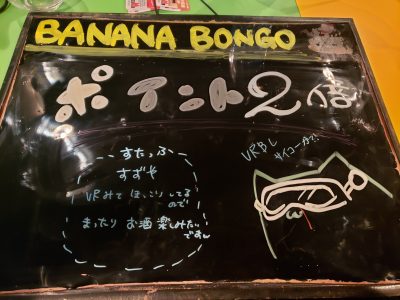 BANANA BONGO
ポイント2倍
すたっふ
すずや
VRみて ほっこり してる
ので
まったり お酒 楽しみたい
ですね
VRBし
サイコーかよ